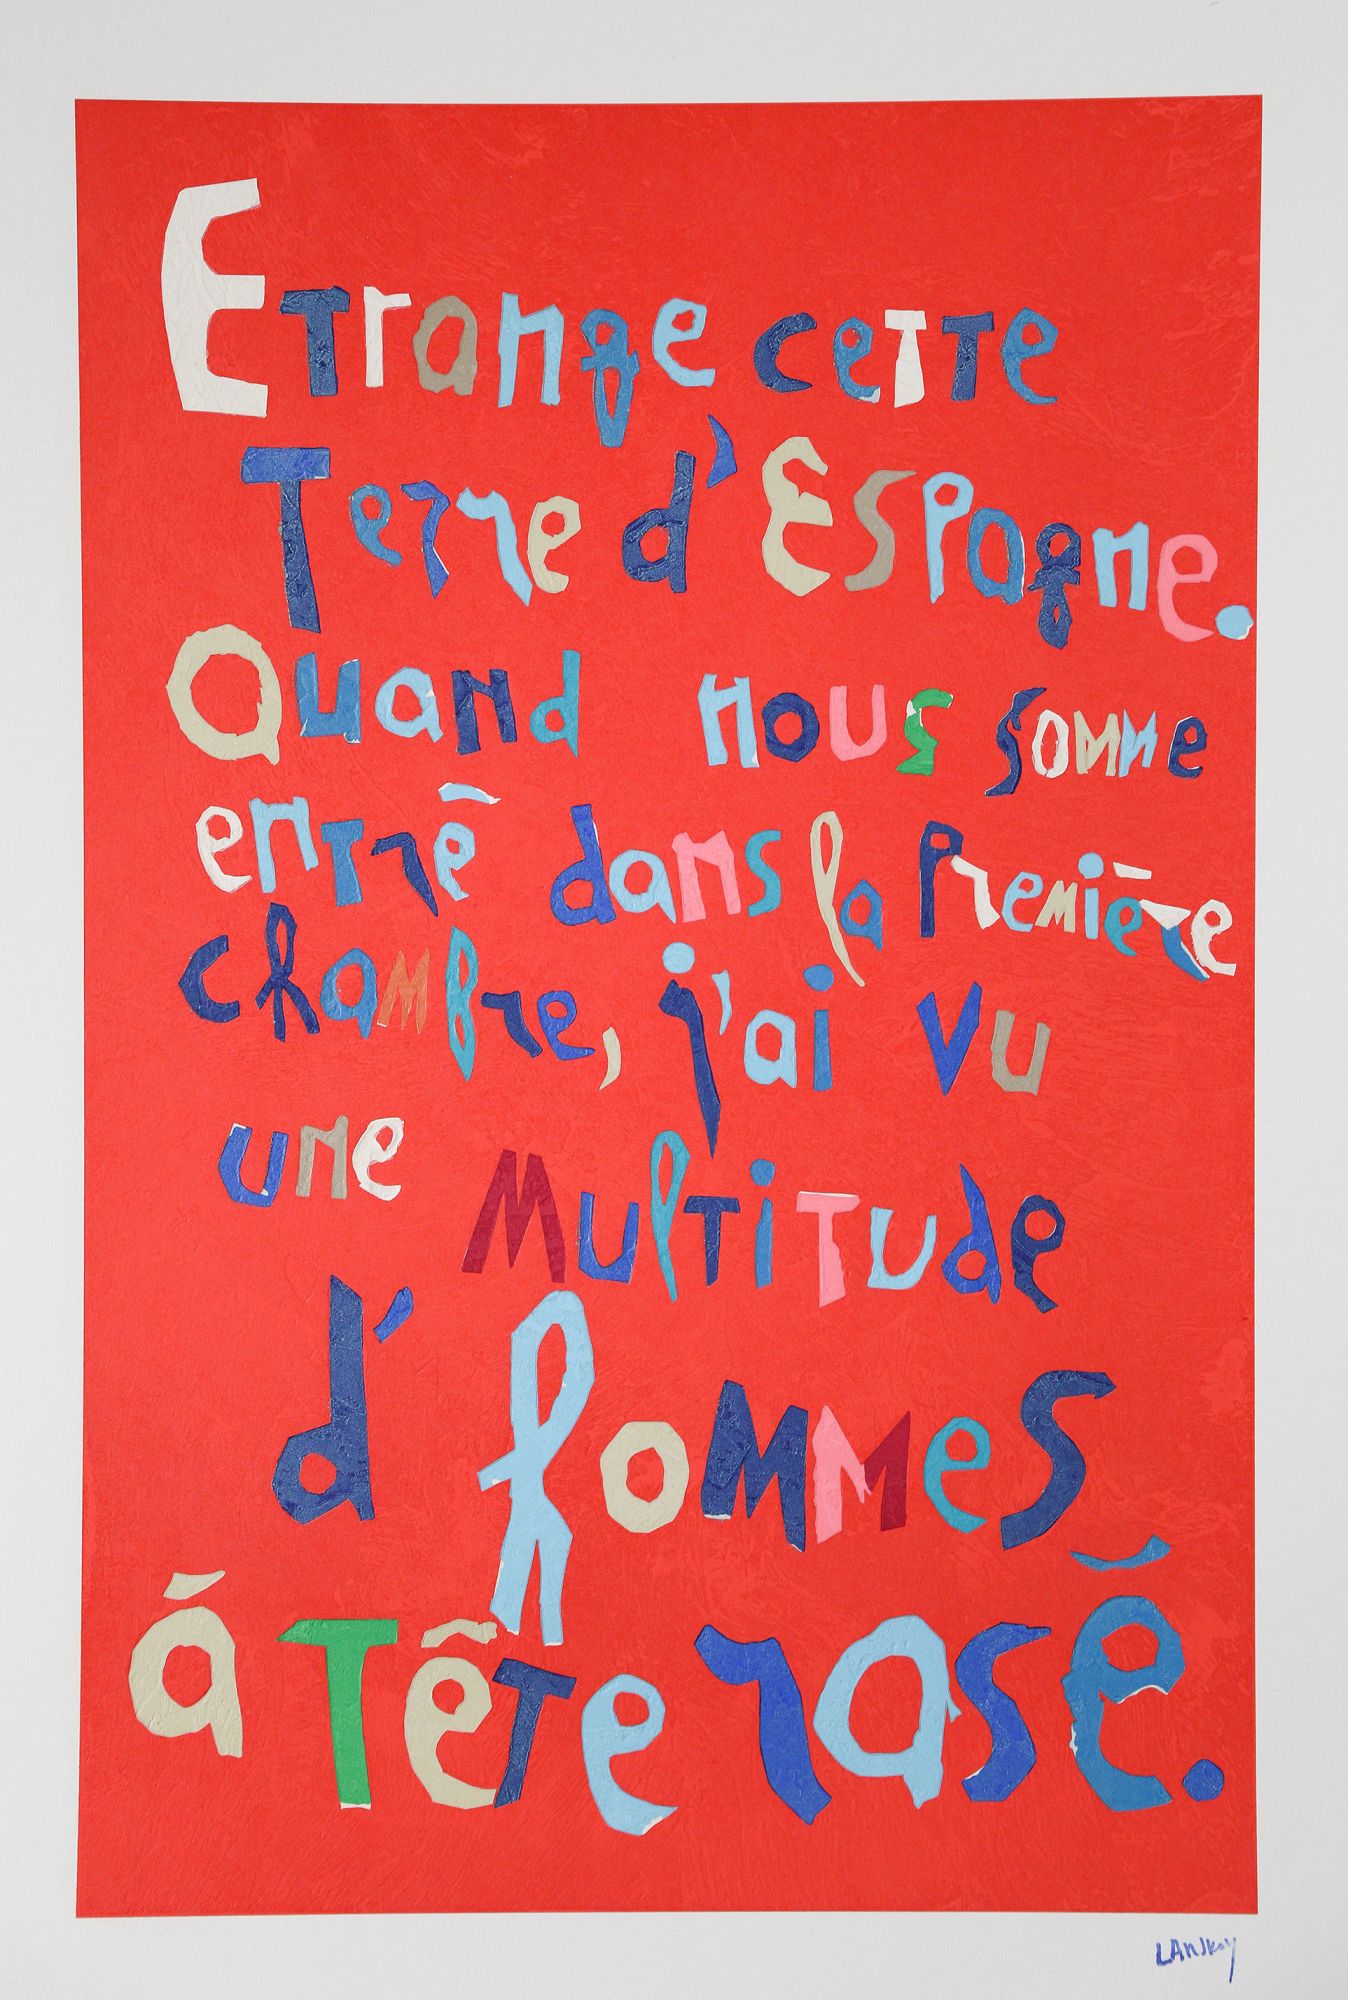 Etrange cette
Terre d'Espagne.
Quand nous somme
entré dans la Première
chambre, j'ai vu
une Multitude
d'hommes
à Tête rasé.
LANSKOY